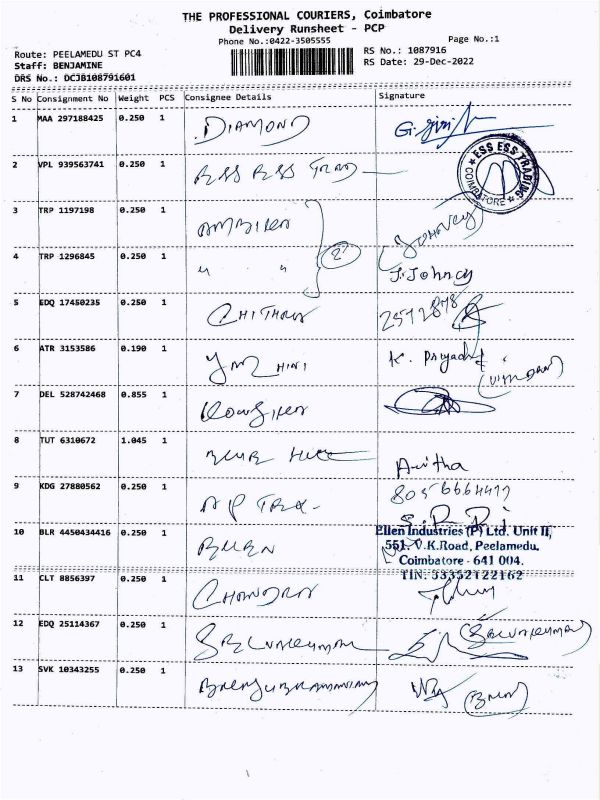 THE PROFESSIONAL COURIERS, Coimbatore
Delivery Runsheet - PCP
Phone No.:0422-3505555
Page No.:1
Route: PEELAMEDU ST PC4
Staff: BENJAMINE
DRS No.: DCJB108791601
RS No.: 1087916
RS Date: 29-Dec-2022
S No Consignment No Weight PCS Consignee Details Signature
1 MAA 297188425 0.250 1 DIAMOND
2 VPL 939563741 0.250 1 ESS ESS TRAD
ESS ESS TRADING
COIMBATORE
3 TRP 1197198 0.250 1
4 TRP 1296845 0.250 1 " " 2 J. Johncy
5 EDQ 17450235 0.250 1 CHITHRA 2572878
6 ATR 3153586 0.190 1 K. Priyadh
7 DEL 528742468 0.855 1
8 TUT 6310672 1.045 1 BLUE Anitha
9 KDG 27880562 0.250 1 AP TEX- 8056664477
10 BLR 4450434416 0.250 1 ELLEN
Ellen Industries (P) Ltd. Unit II,
551. V.K.Road, Peelamedu.
Coimbatore - 641 004.
TIN: 33352122162
11 CLT 8856397 0.250 1 CHANDRA
12 EDQ 25114367 0.250 1 SELVAKUMAR (SELVAKUMAR)
13 SVK 10343255 0.250 1 BALASUBRAMANIAM